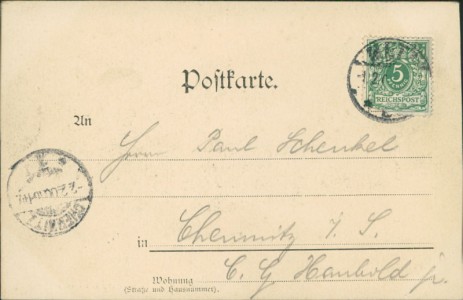 Postkarte.
5
REICHSPOST
An
Herrn Paul Schenkel
in Chemnitz i. S.
C. G. Haubold jr.
Wohnung
(Straße und Hausnummer)
CHEMNITZ